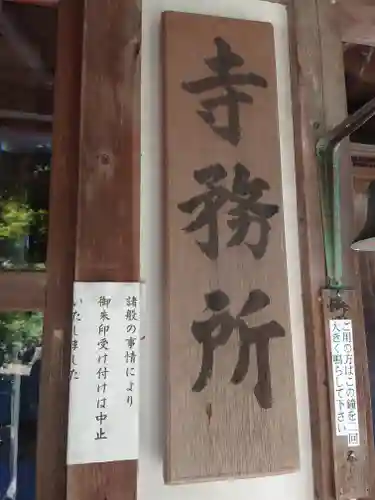 寺務所
ご用の方はこの鐘を二回
大きく鳴らして下さい
諸般の事情により
御朱印受け付けは中止
いたしました